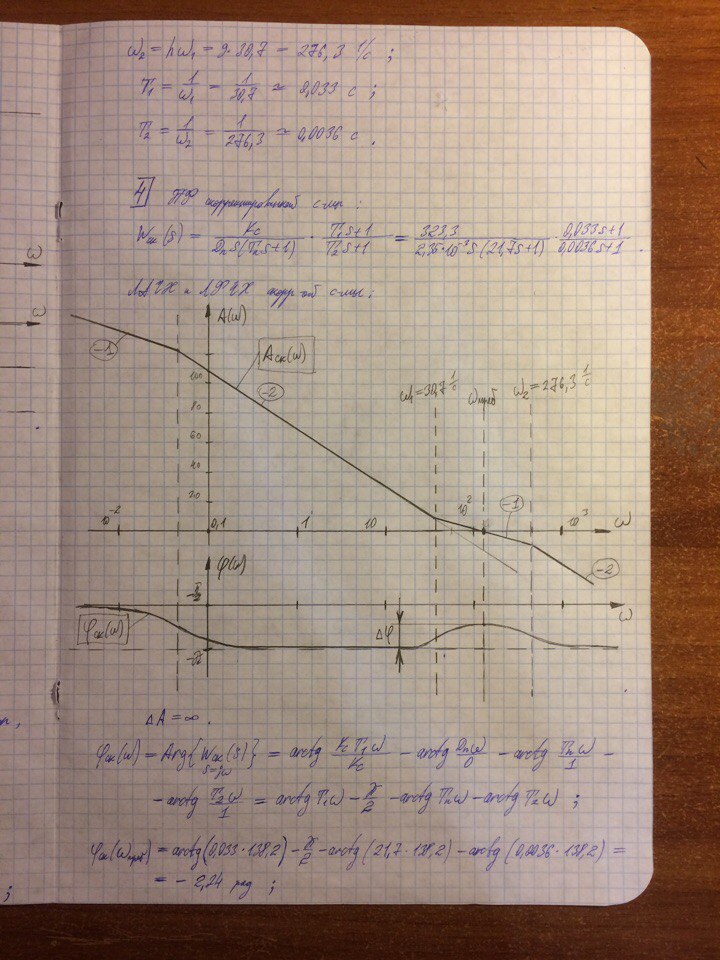 ω₂ = hω₁ = 9·30,7 = 276,3 1/с ;
T₁ = 1/ω₁ = 1/30,7 ≈ 0,033 с ;
T₂ = 1/ω₂ = 1/276,3 ≈ 0,0036 с .
4 ПФ скорректированной с-мы :
Wск(s) = Kс/(Dп s(Tп s+1)) · (T₁s+1)/(T₂s+1) = 323,3/(2,35·10⁻³ s (21,7s+1)) · (0,033s+1)/(0,0036s+1) .
ЛАЧХ и ЛФЧХ скорр-ой с-мы :
A(ω)
-1
Aск(ω)
-2
100
80
60
40
20
ω₁=30,7 1/с
ω₂=276,3 1/с
10⁻²
0,1
1
10
10²
10³
ω
-1
-2
φ(ω)
-π/2
ω
φск(ω)
Δφ
-π
ΔA = ∞ .
φск(ω) = Arg{Wск(s)} s=jω = arctg KсT₁ω/Kс - arctg Dпω/0 - arctg Tпω/1 -
- arctg T₂ω/1 = arctg T₁ω - π/2 - arctg Tпω - arctg T₂ω ;
φск(ωсреб) = arctg(0,033·138,2) - π/2 - arctg(21,7·138,2) - arctg(0,0036·138,2) =
= - 2,24 рад ;
ω
ω